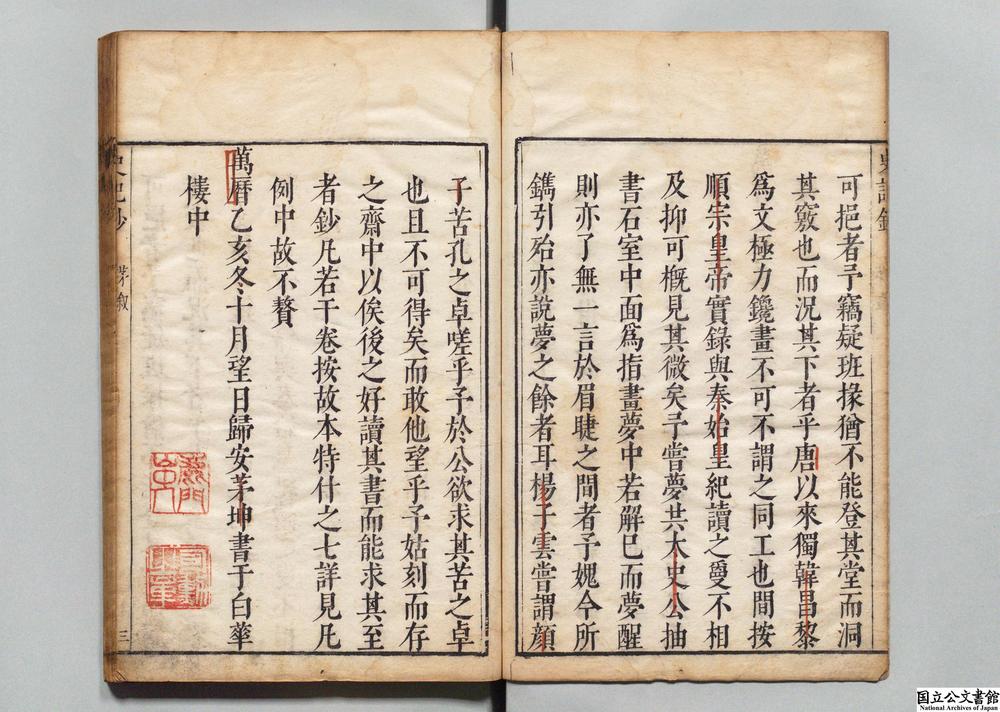 可挹者予竊疑班掾猶不能登其堂而洞
其竅也而況其下者乎唐以來獨韓昌黎
爲文極力鑱畫不可不謂之同工也間按
順宗皇帝實錄與秦始皇紀讀之夐不相
及抑可概見其微矣予嘗夢共太史公抽
書石室中面爲指畫夢中若解已而夢醒
則亦了無一言於眉睫之間者予媿今所
鐫引殆亦說夢之餘者耳楊子雲嘗謂顏
子苦孔之卓嗟乎予於公欲求其苦之卓
也且不可得矣而敢他望乎予姑刻而存
之齋中以俟後之好讀其書而能求其至
者鈔凡若干卷按故本特什之七詳見凡
例中故不贅
萬曆乙亥冬十月望日歸安茅坤書于白華
樓中
史記鈔
茅敘
三
国立公文書館
National Archives of Japan